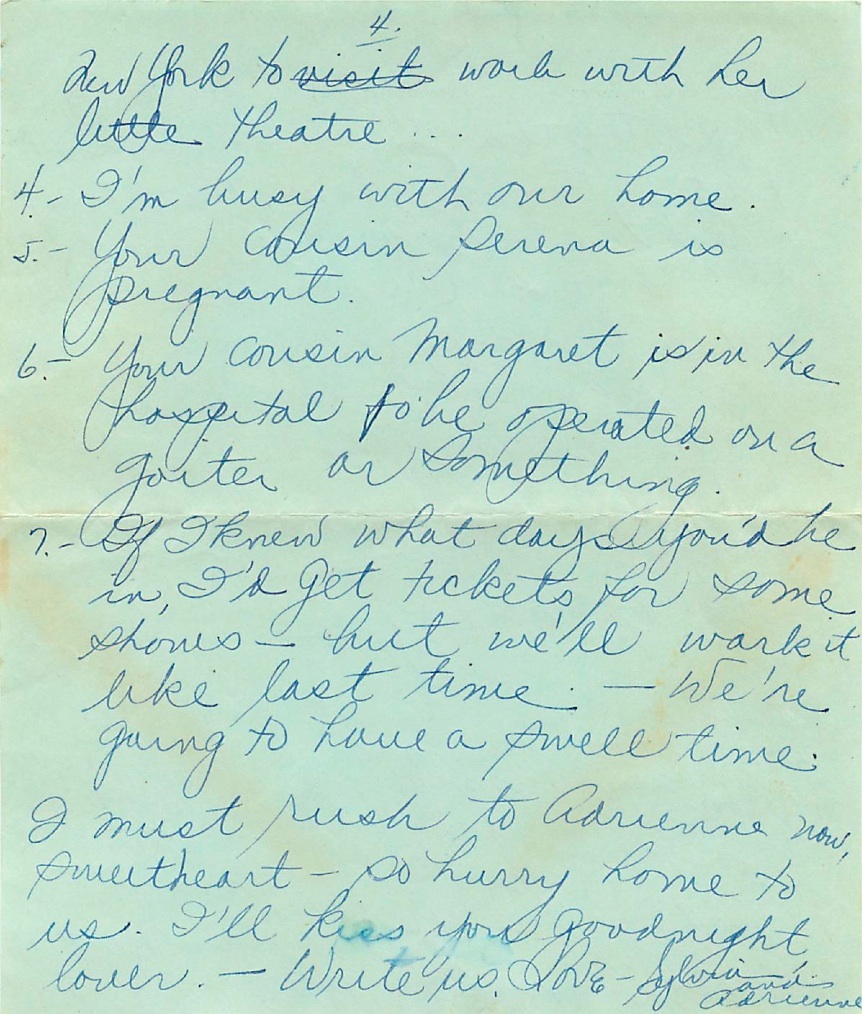 4.
New York to visit work with her
little theatre ...
4.- I'm busy with our home.
5.- Your cousin Serena is
pregnant.
6.- Your cousin Margaret is in the
hospital to be operated on a
goiter or something.
7.- If I knew what days you'd be
in, I'd get tickets for some
shows - but we'll work it
like last time. - We're
going to have a swell time.
I must rush to Adrienne now,
sweetheart - so hurry home to
us. I'll kiss you goodnight
lover. - Write us. Love - Sylvia
and
Adrienne